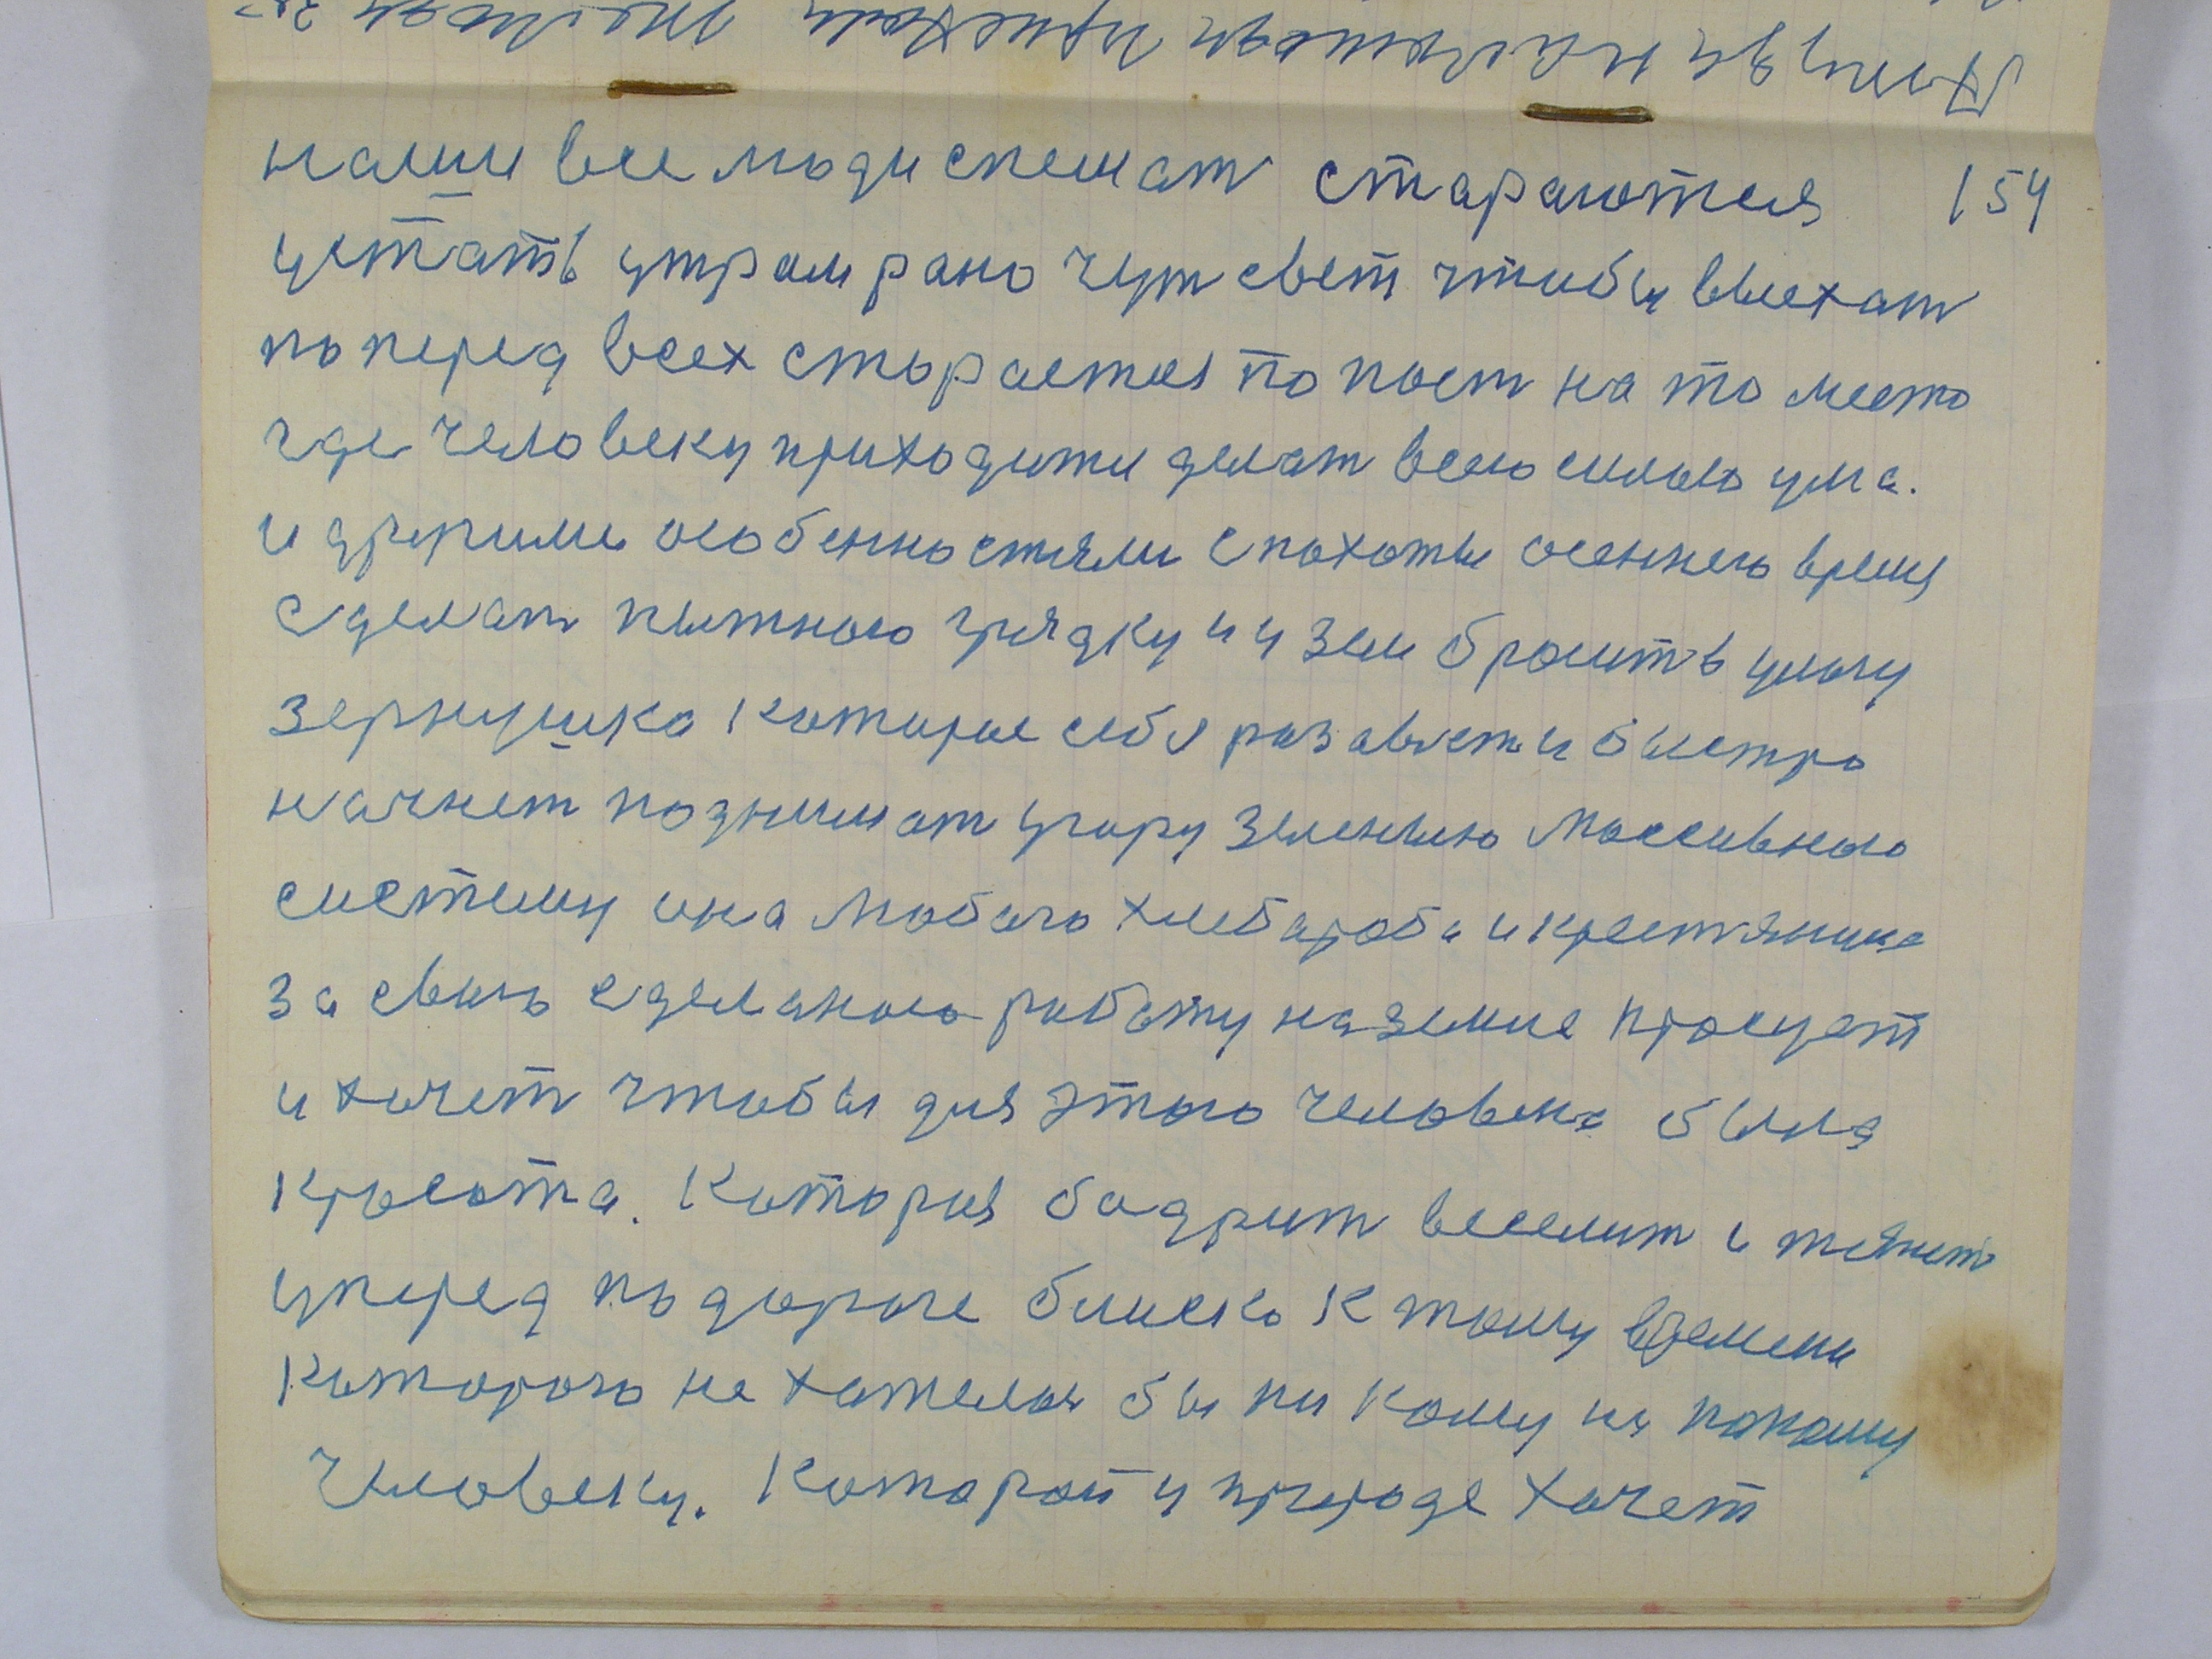 154
наши все люди спешат стараются
устать утрам рано чут свет чтобы выехат
поперед всех старается попаст на то место
где человеку приходитн делат всею силою ума.
и другими особенностями с пахоты осеннего время
сделат пытною грядку и у зем бросить у лычу
зернушка каторае себя разавет и быстро
начнет подннмат угару зеленою массивною
систему она любого хлебароба и крестянина
за свою сделаною работу на земле прасует
и хочет чтобы для этого человека была
красота. Каторая бадрит веселит и тянет
уперед по дороге блиско к тому времени
каторого не хателос бы ни кому ни покому
человеку. Каторой у природе хочет